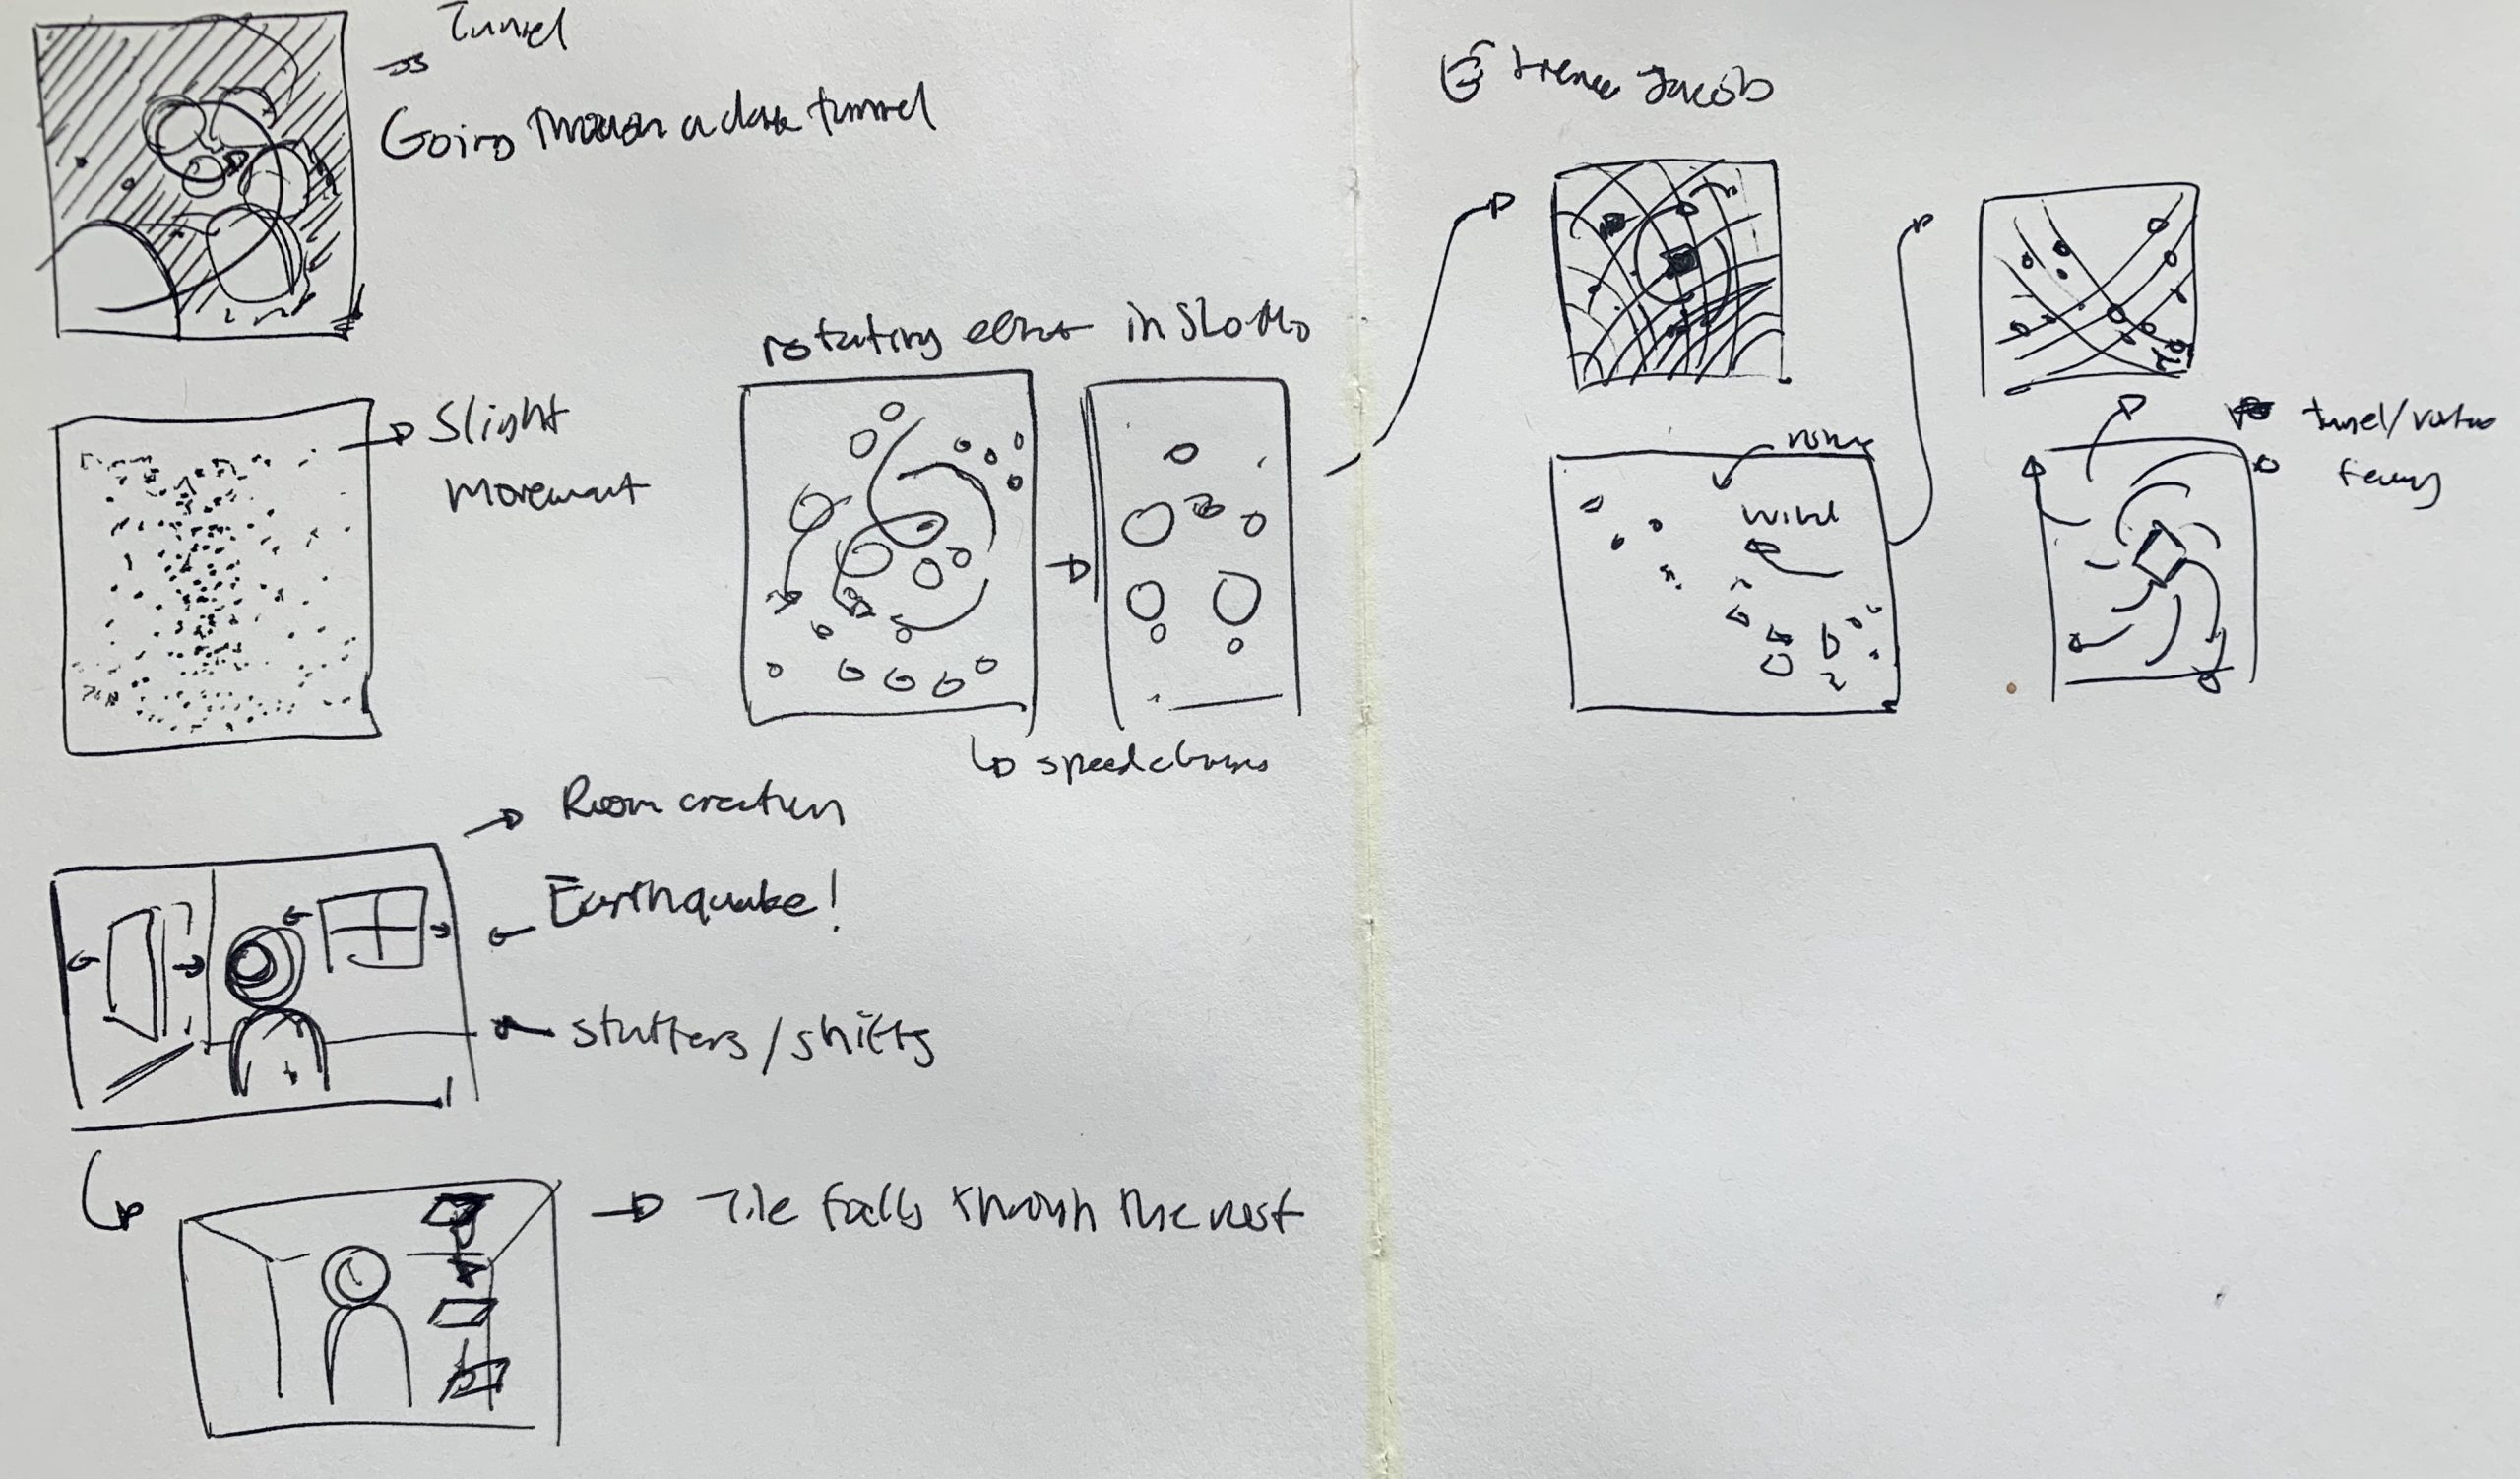 Tunnel
Going through a dark tunnel
Slight
movement
rotating effect in SloMo
speed changes
Room creation
Earthquake!
stutters/shifts
Tile falls through the rest
Irene Jacob
wind
tunnel/vortex